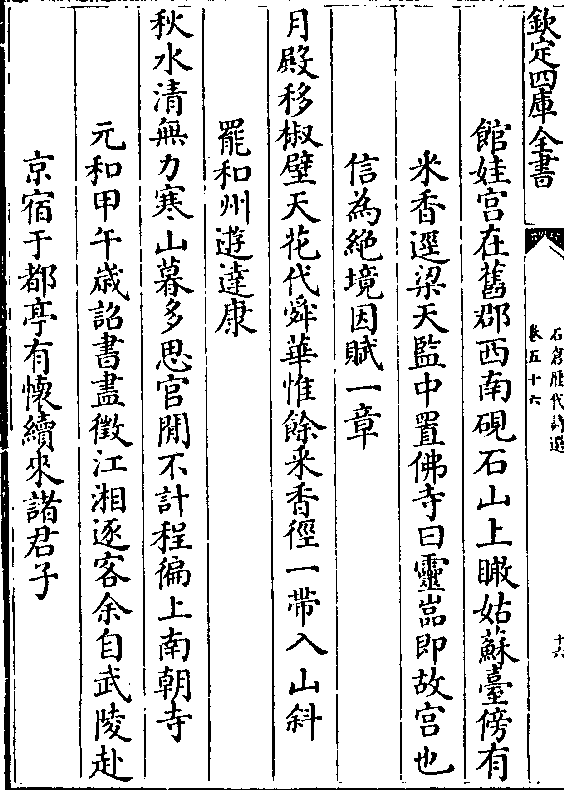 欽定四庫全書
石倉歷代詩選
卷五十六
十六
館娃宫在舊郡西南硯石山上瞰姑蘇臺傍有
米香逕梁天監中置佛寺曰靈嵓即故宫也
信為絶境因賦一章
月殿移椒壁天花代舜華惟餘采香徑一帶入山斜
罷和州遊達康
秋水清無力寒山暮多思官閒不計程徧上南朝寺
元和甲午歲詔書盡徵江湘逐客余自武陵赴
京宿于都亭有懷續來諸君子